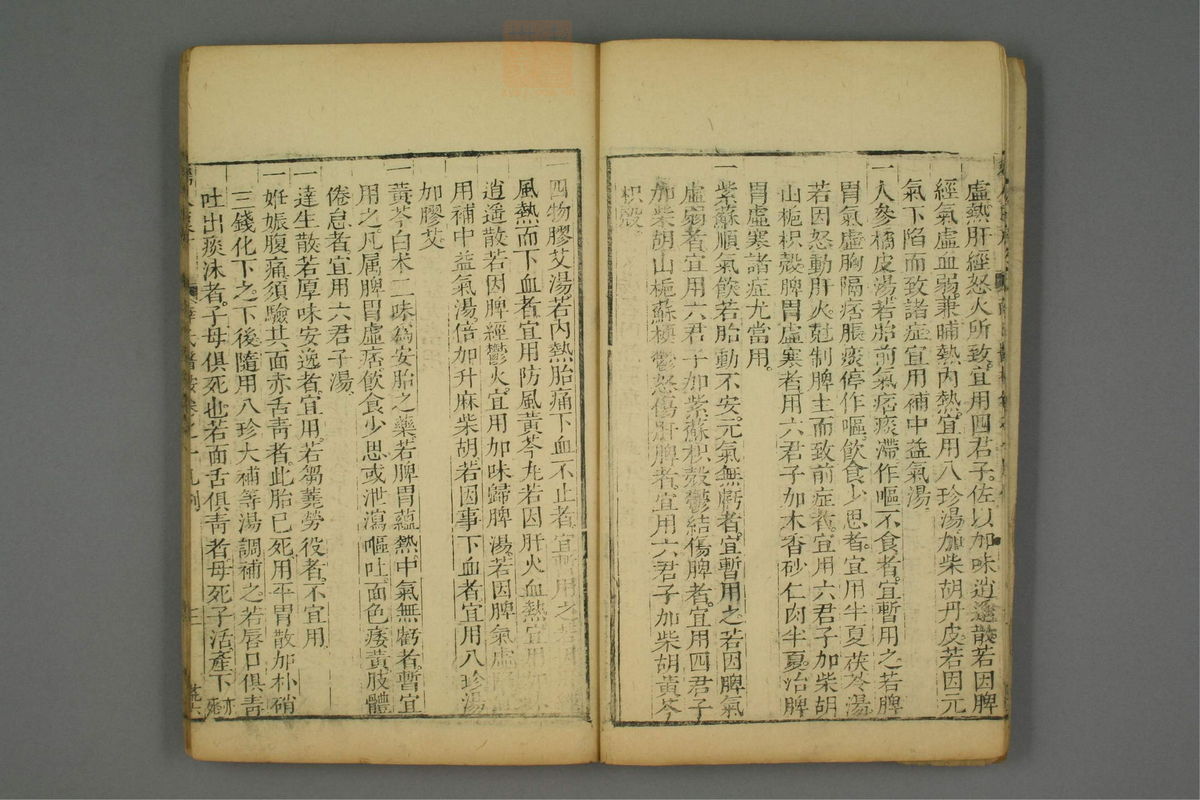 虛熱肝經怒火所致宜用四君子佐以加味逍遙散若因脾
經氣虛血弱兼晡熱內熱宜用八珍湯加柴胡丹皮若因元
氣下陷而致諸症宜用補中益氣湯
一人參橘皮湯若胎前氣痞痰滯作嘔不食者宜暫用之若脾
胃氣虛胸膈痞脹痰停作嘔飲食少思者宜用半夏茯苓湯
若因怒動肝火尅制脾主而致前症者宜用六君子加柴胡
山梔枳殼脾胃虛寒者用六君子加木香砂仁肉半夏治脾
胃虛寒諸症尤當用
一紫蘇順氣飲若胎動不安元氣無虧者宜暫用之若因脾氣
虛弱者宜用六君子加紫蘇枳殼鬱結傷脾者宜用四君子
加柴胡山梔蘇梗鬱怒傷肝脾者宜用六君子加柴胡黃芩
枳殼
一四物膠艾湯若內熱胎痛下血不止者宜暫用之
風熱而下血者宜用防風黃芩丸若因肝火血熱宜用加味
逍遙散若因脾經鬱火宜用加味歸脾湯若因脾氣虛
用補中益氣湯倍加升麻柴胡若因事下血者宜用八珍湯
加膠艾
一黃芩白术二味為安胎之藥若脾胃蘊熱中氣無虧者暫宜
用之凡属脾胃虛痞飲食少思或泄瀉嘔吐面色痿黃肢體
倦怠者宜用六君子湯
一達生散若厚味安逸者宜用若芻蕘勞役者不宜用
一妊娠腹痛須驗其面赤舌青者此胎已死用平胃散加朴硝
三錢化下之下後隨用八珍大補等湯調補之若唇口俱青
吐出痰沫者子母俱死也若面舌俱青者母死子活產下亦死